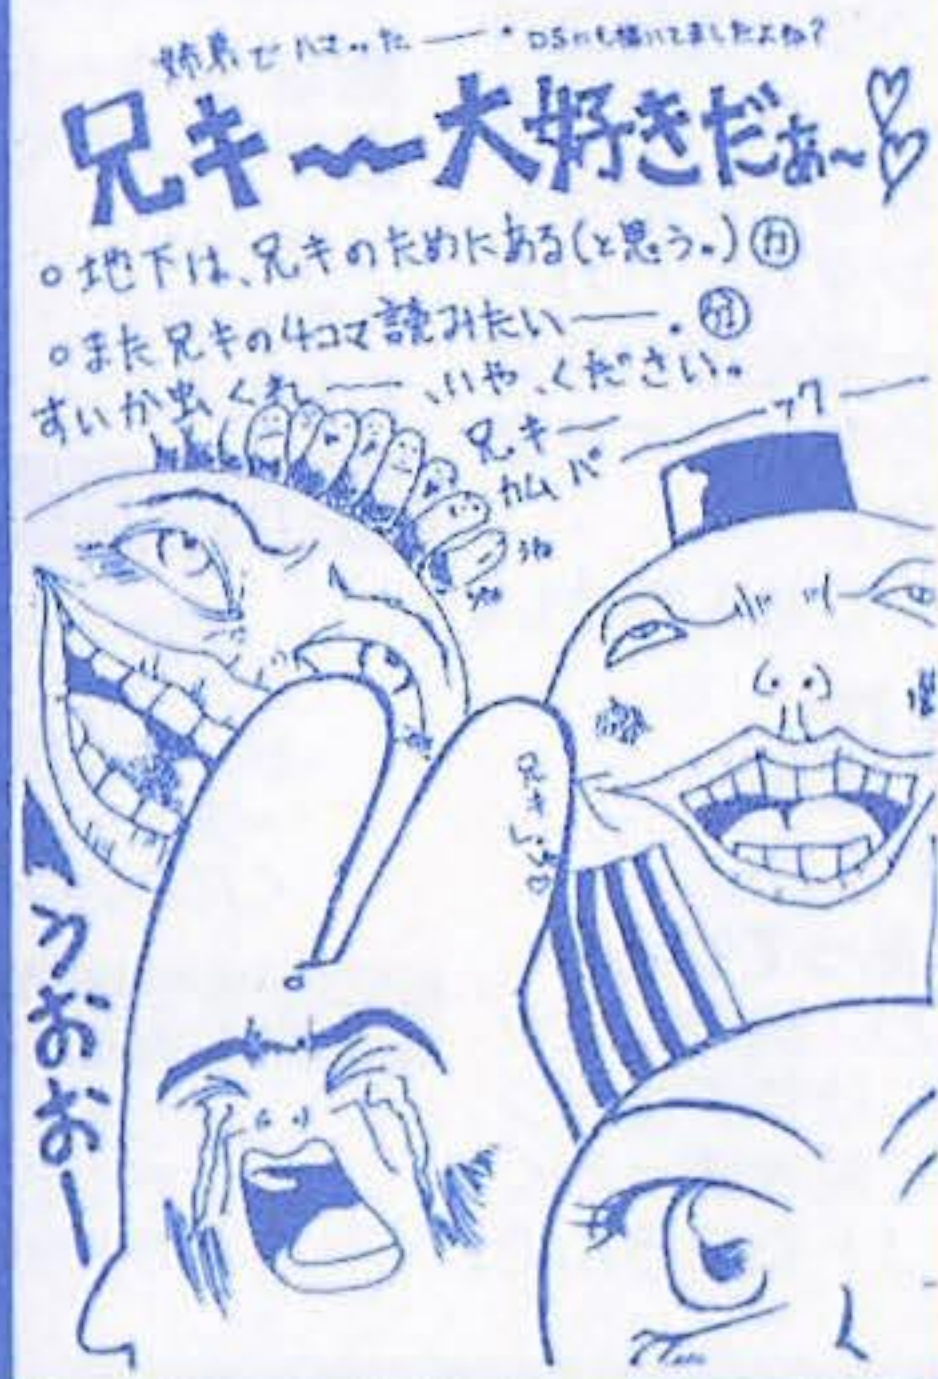 姉弟でハマったー・DSにも描いてましたよね?
兄キ〜〜大好きだぁ〜♡♡
○地下は、兄キのためにある(と思う。)
○また兄キの4コマ読みたいー。
すいか虫くれー、いや、ください。
兄キー
カムバーックー
うね
うね
兄キ
うおおー